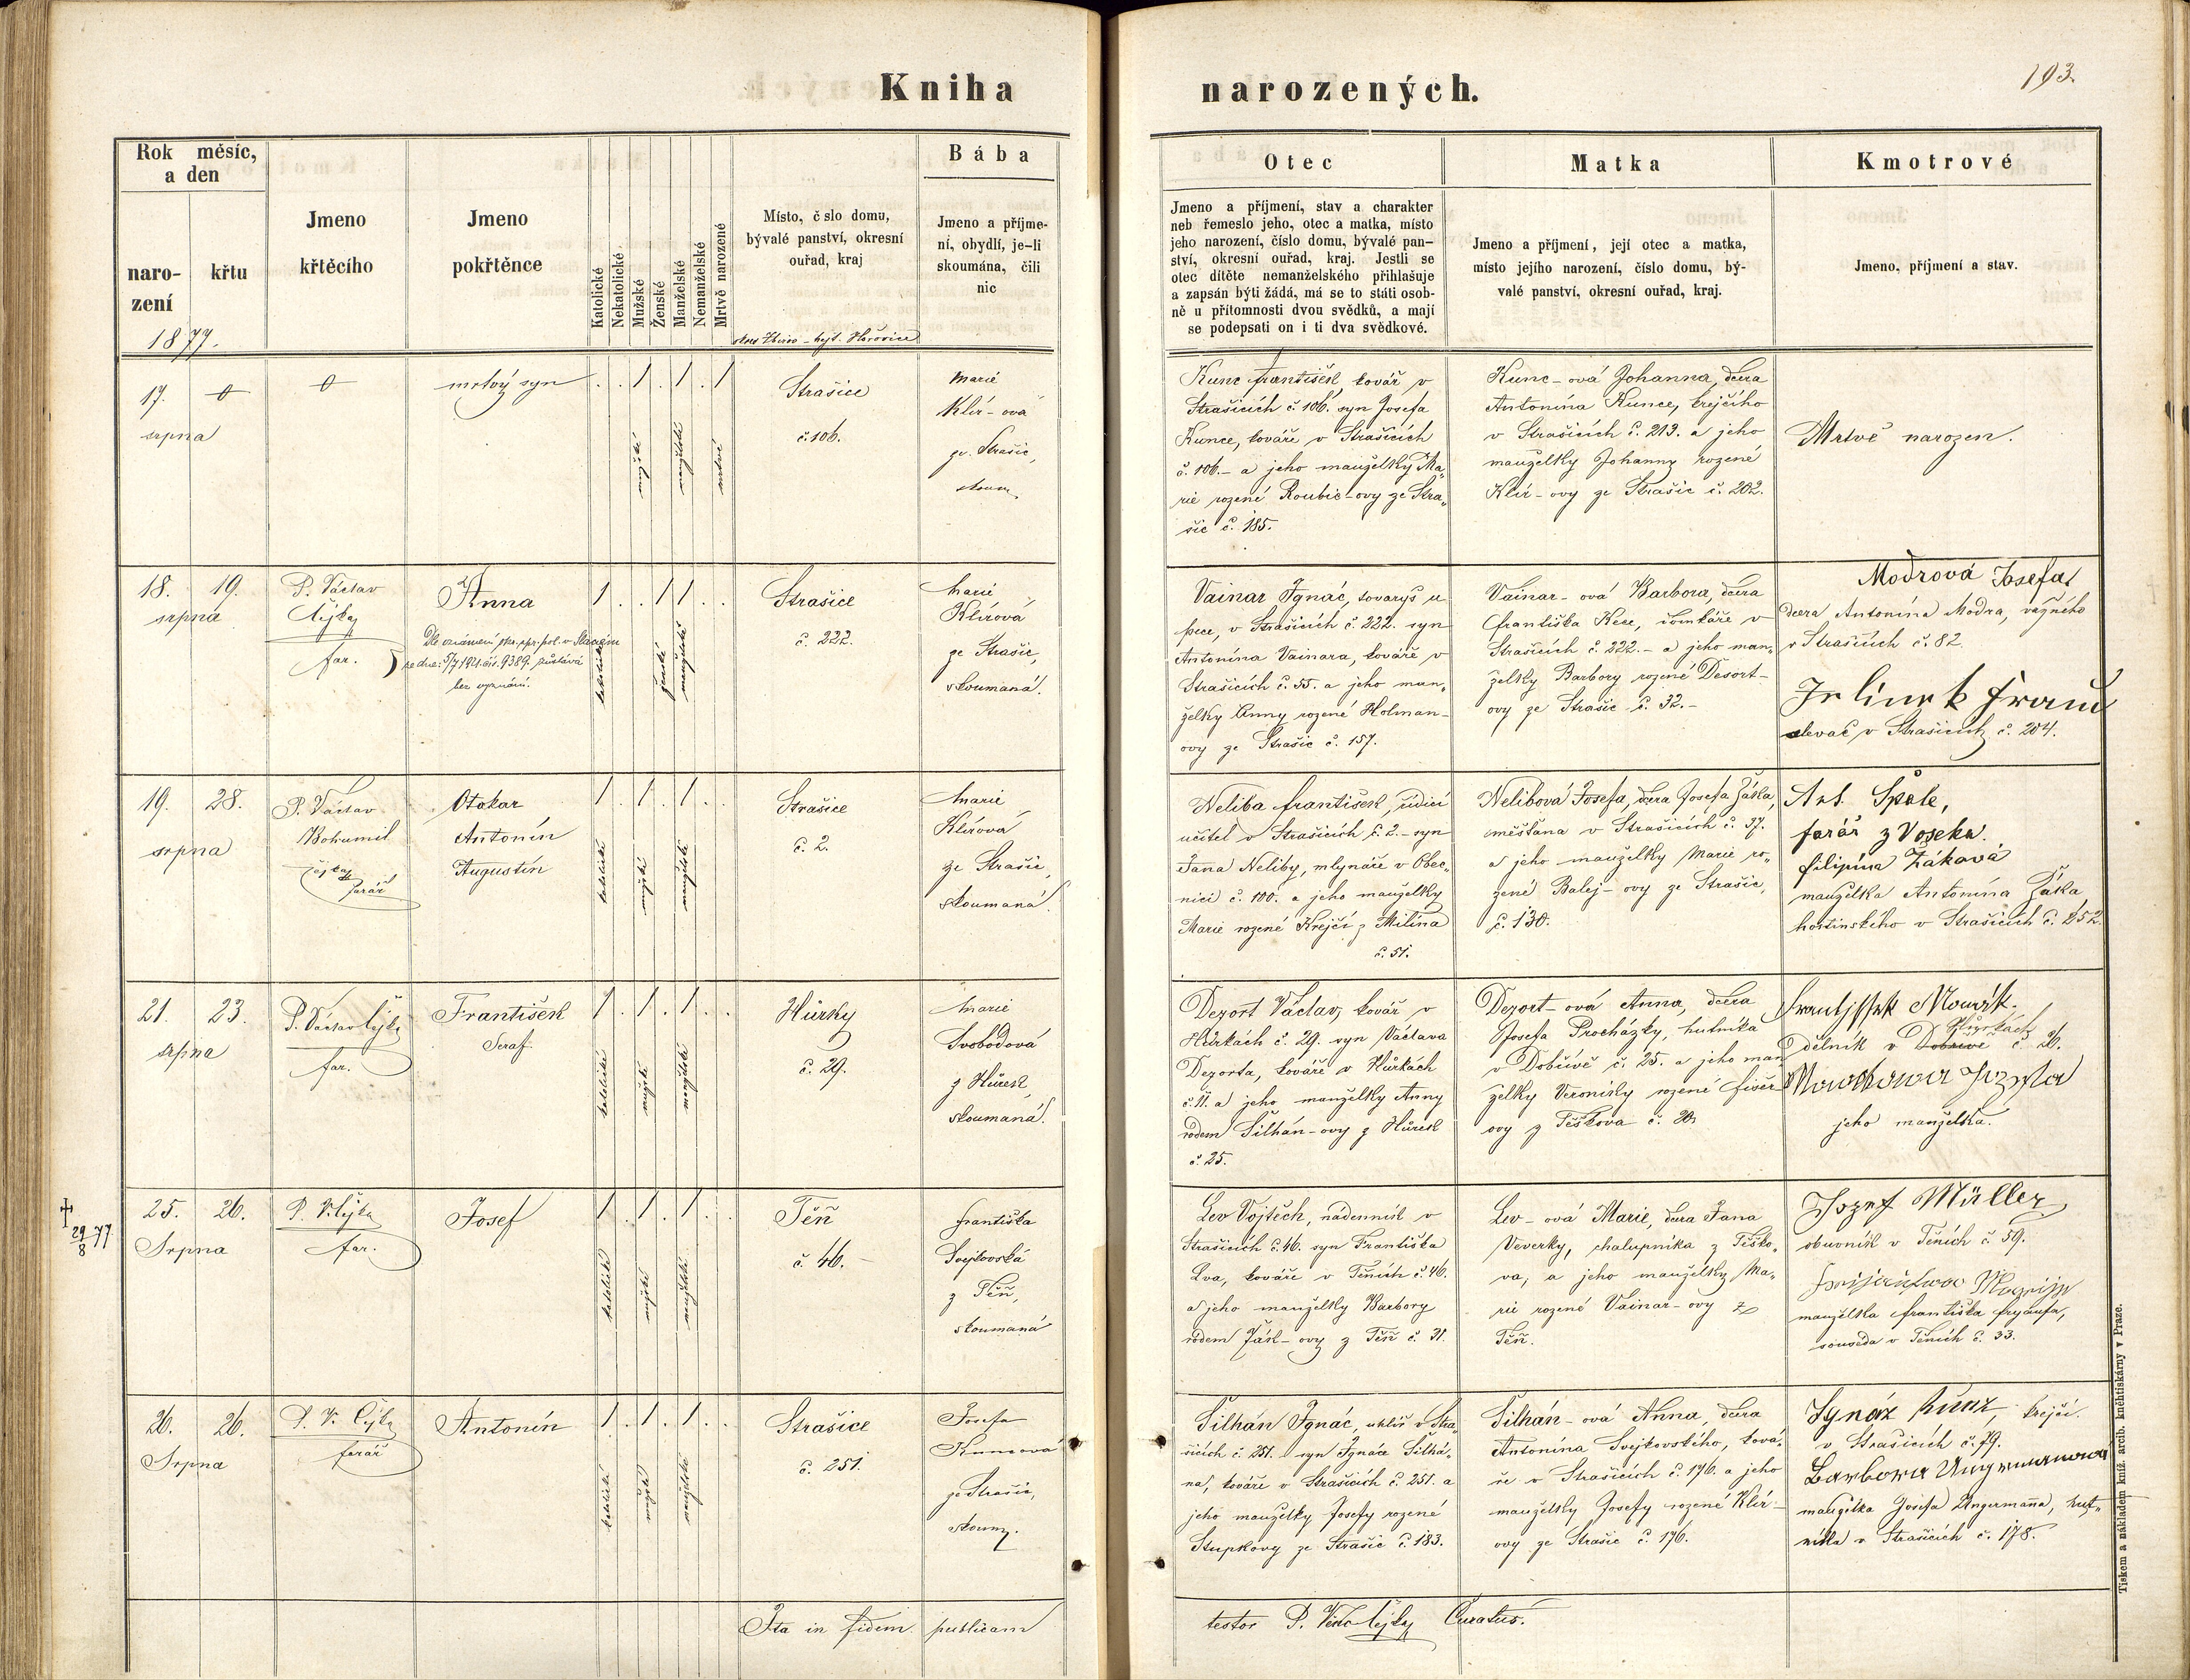 Kniha narozených.
193.
Rok měsíc,
a den
naro-
zení
křtu
1877.
Jmeno
křtěcího
Jmeno
pokřtěnce
Katolické
Nekatolické
Mužské
Ženské
Manželské
Nemanželské
Mrtvě narozené
Místo, č slo domu,
bývalé panství, okresní
ouřad, kraj
Bába
Jmeno a příjme-
ní, obydlí, je-li
skoumána, čili
nic
Otec
Jmeno a příjmení, stav a charakter
neb řemeslo jeho, otec a matka, místo
jeho narození, číslo domu, bývalé pan-
ství, okresní ouřad, kraj. Jestli se
otec dítěte nemanželského přihlašuje
a zapsán býti žádá, má se to státi osob-
ně u přítomnosti dvou svědků, a mají
se podepsati on i ti dva svědkové.
Matka
Jmeno a příjmení, její otec a matka,
místo jejího narození, číslo domu, bý-
valé panství, okresní ouřad, kraj.
Kmotrové
Jmeno, příjmení a stav.
17.
srpna
mrtvý syn
mužské
manželské
mrtvé
Strašice
č. 106.
Marie
Klír-ová
ze Strašic,
skoum.
Kunc František, kovář v
Strašicích č. 106. syn Josefa
Kunce, kováře v Strašicích
č. 106.- a jeho manželky Ma„
rie rozené Roubic-ovy ze Stra„
šic č. 185.
Kunc-ová Johanna, dcera
Antonína Kunce, krejčího
v Strašicích č. 213. a jeho
manželky Johanny rozené
Klír-ovy ze Strašic č. 202.
Mrtvě narozen.
18. 19.
srpna
P. Václav
Čýka
far.
Anna
bez vyznání.
katolické
ženské
manželské
Strašice
č. 222.
Marie
Klírová
ze Strašic,
skoumaná.
Vainar Ignác, tovaryš u
pece, v Strašicích č. 222. syn
Antonína Vainara, kováře v
Strašicích č. 55. a jeho man„
želky Anny rozené Holman-
ovy ze Strašic č. 157.
Vainar-ová Barbora, dcera
Františka Kece, domkáře v
Strašicích č. 222.- a jeho man„
želky Barbory rozené Desort-
ovy ze Strašic č. 32.-
Modrová Josefa,
dcera Antonína Modra, vážného
v Strašicích č. 82.
Jelinek Franc
slevač v Strašicích č. 204.
19. 28.
srpna
P. Václav
Bohumil
Čýka
farář
Otokar
Antonín
Augustín
katolické
mužské
manželské
Strašice
č. 2.
Marie
Klírová
ze Strašic,
skoumaná.
Neliba František, řídicí
učitel v Strašicích č. 2.- syn
Jana Neliby, mlynáře v Obec„
nici č. 100. a jeho manželky
Marie rozené Krejčí z Milína
č. 51.
Nelibová Josefa, dcera Josefa Žáka,
měšťana v Strašicích č. 37.
a jeho manželky Marie ro„
zené Balej-ovy ze Strašic,
č. 130.
Ant. Špale,
farář z Voseka.
Filipína Žáková
manželka Antonína Žáka
hostinského v Strašicích č. 252.
21. 23.
srpna
P. Václav Čýka
far.
František
Seraf.
katolické
mužské
manželské
Hůrky
č. 29.
Marie
Svobodová
z Hůrek,
skoumaná.
Dezort Václav, kovář v
Hůrkách č. 29. syn Václava
Dezorta, kováře v Hůrkách
č. 11. a jeho manželky Anny
rodem Šilhán-ovy z Hůrek
č. 25.
Dezort-ová Anna, dcera
Josefa Procházky, hutníka
v Dobřívě č. 25. a jeho man
želky Veroniky rozené Fišer
ovy z Těškova č. 20.
Frantjssek Nowák.
Hůrkách
dělník v Dobřívě č. 26.
Nowákowa Jozefa
jeho manželka.
✝ 29/8 77
25. 26.
Srpna
P. V. Čýka
far.
Josef
katolické
mužské
manželské
Těň
č. 46.-
Františka
Svejkovská
z Těň,
skoumaná
Lev Vojtěch, nádenník v
Strašicích č. 46. syn Františka
Lva, kováře v Těních č. 46.
a jeho manželky Barbory
rodem Žákl-ovy z Těň č. 31.
Lev-ová Marie, dcera Jana
Veverky, chalupníka z Těško„
va, a jeho manželky Ma„
rie rozené Vainar-ovy z
Těň.
Jozef Müller
obuvník v Těních č. 59.
manželka Františka Fryaufa,
souseda v Těních č. 33.
26. 26.
Srpna
P. V. Čýka
farář
Antonín
katolické
mužské
manželské
Strašice
č. 251.
Josefa
Kuncová
ze Strašic,
skoum.
Šilhán Ignác, uhlíř v Stra„
šicích č. 251. syn Ignáce Šilhá„
na, kováře v Strašicích č. 251. a
jeho manželky Josefy rozené
Stupkovy ze Strašic č. 183.
Šilhán-ová Anna, dcera
Antonína Svejkovského, ková„
ře v Strašicích č. 176. a jeho
manželky Josefy rozené Klír-
ovy ze Strašic č. 176.
Ignáz Kunz, krejčí.
v Strašicích č. 79.
Barbora Ungrmanowa
manželka Josefa Ungermanna, hut„
níka v Strašicích č. 178.
Ita in fidem publicam
testor P. Václ. Čýka Curatus.
Tiskem a nákladem kníž. arcib. kněhtiskárny v Praze.